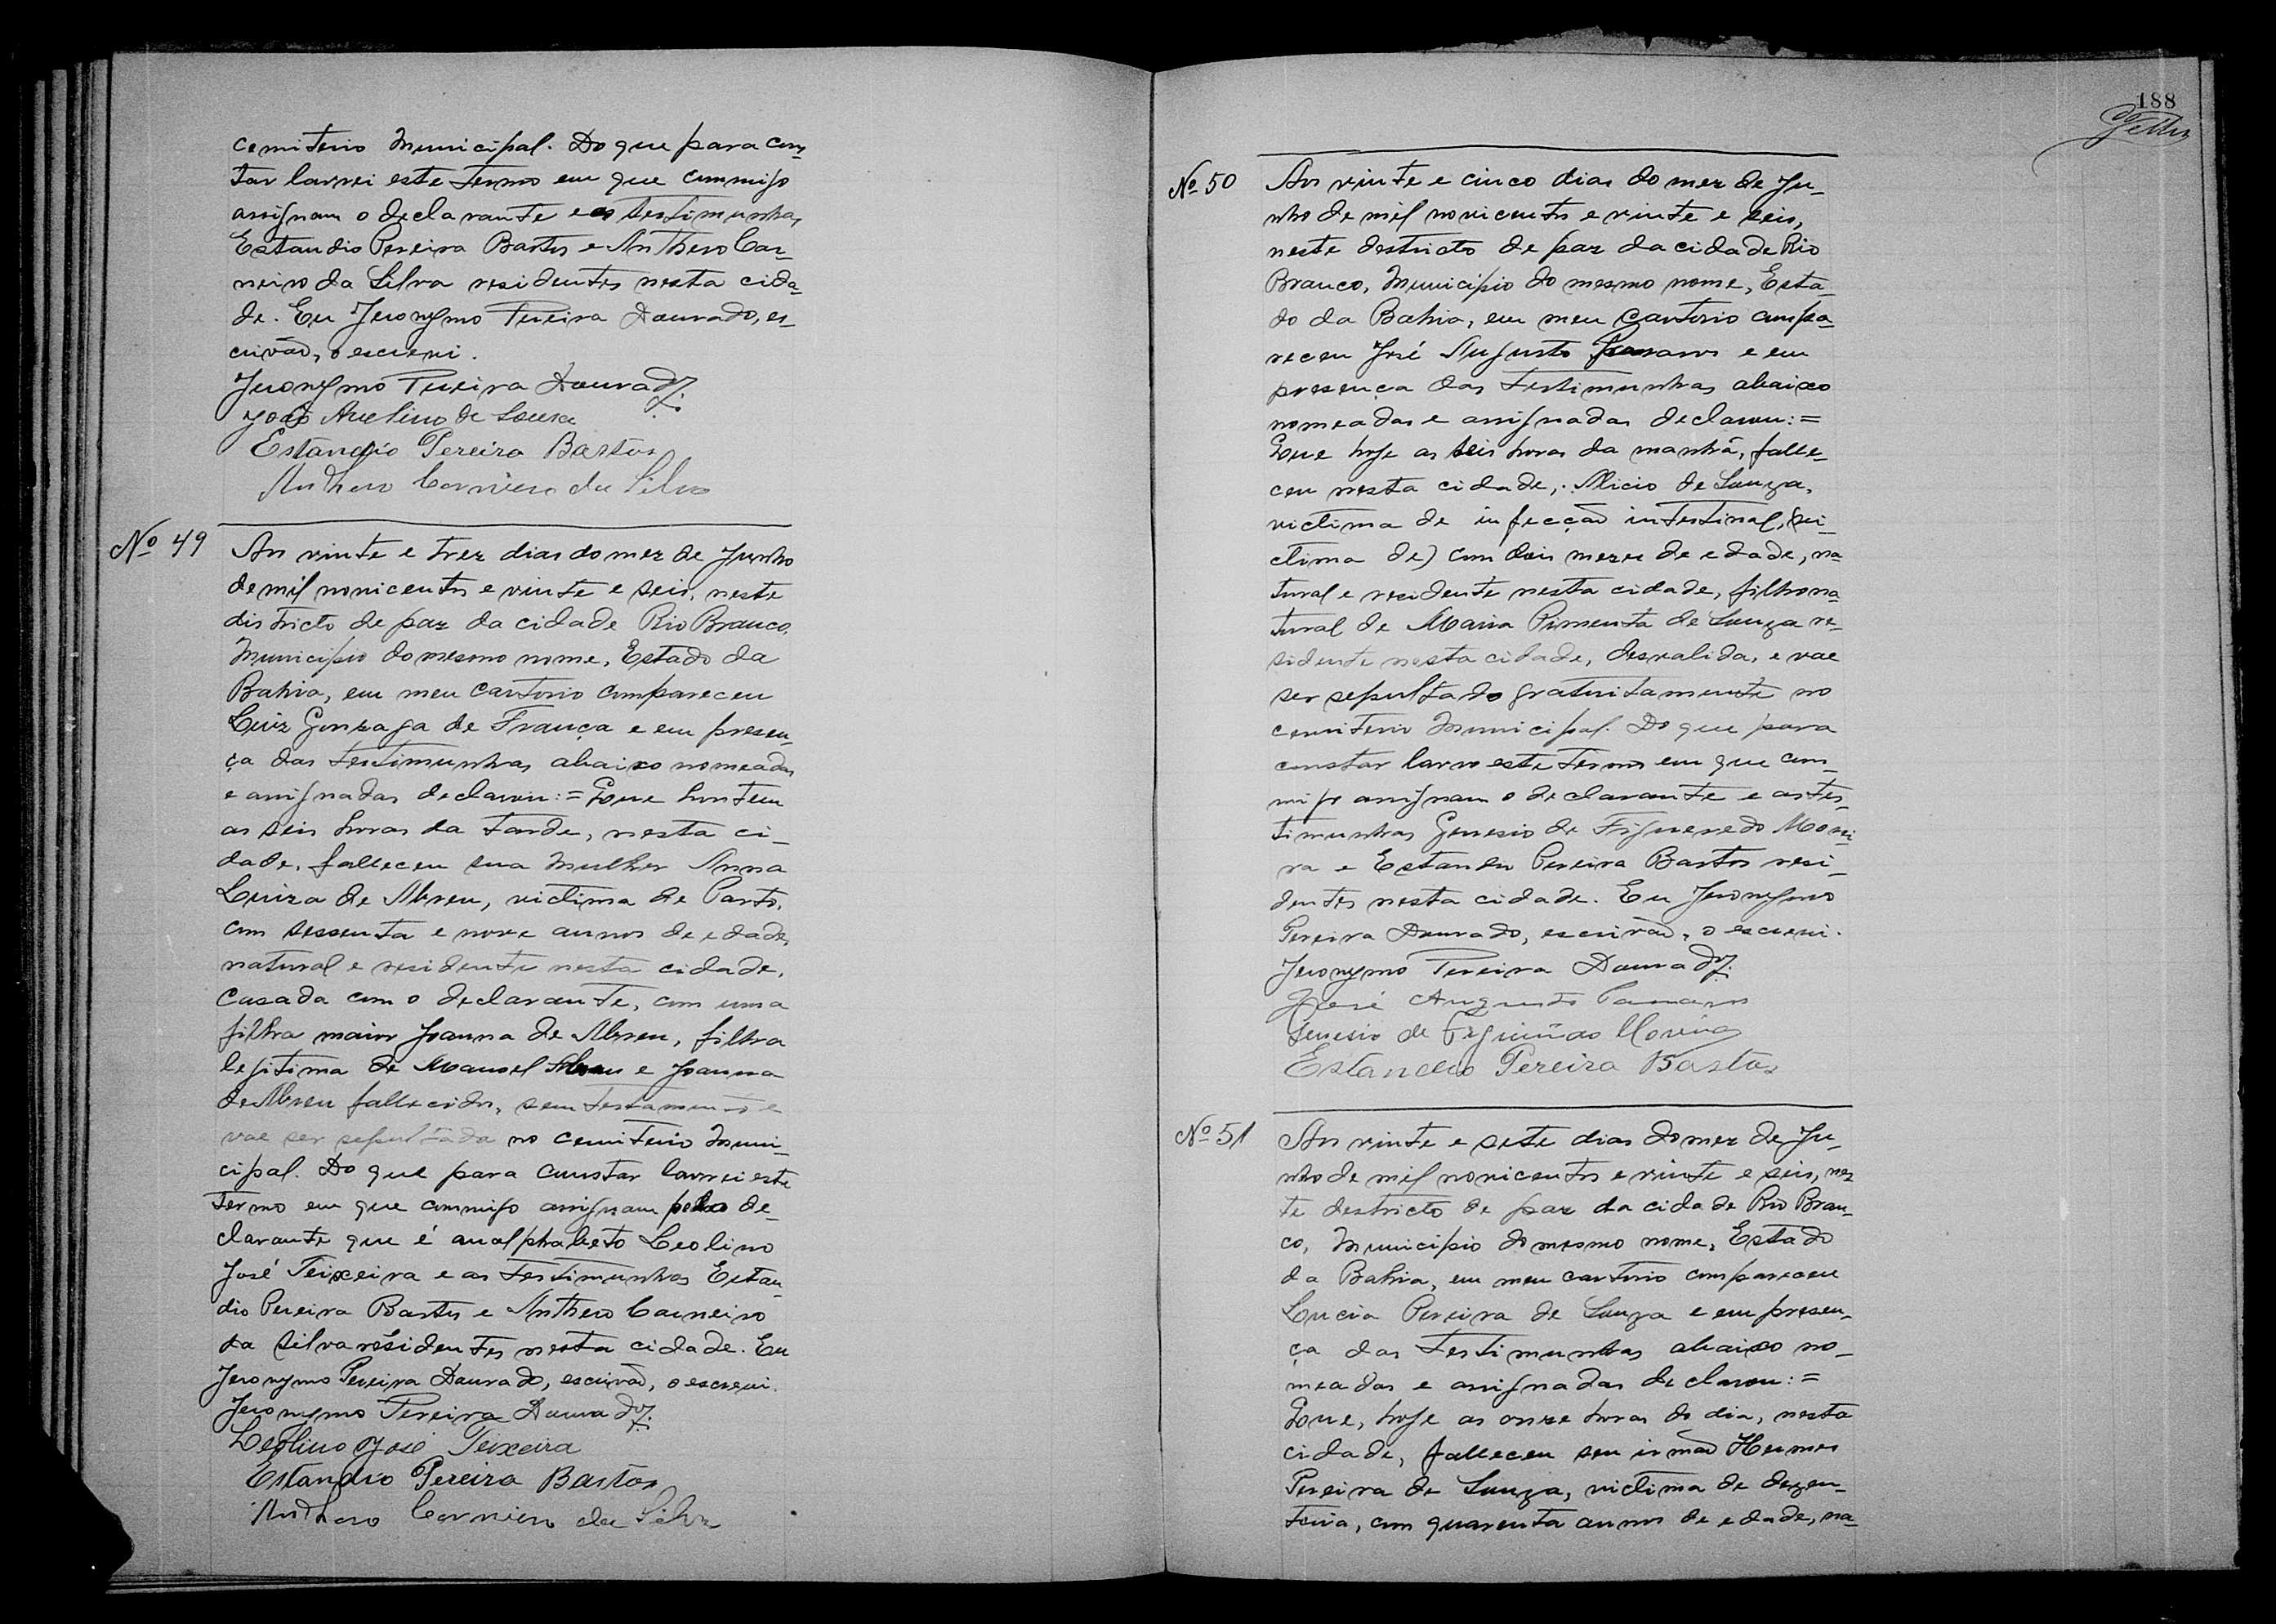 cemiterio Municipal. Do que para cons-
tar lavrei este termo em que commigo
assignam o declarante e as testimunhas,
Estandio Pereira Bastos e Anthero Car-
neiro da Silva residentes nesta cida-
de. Eu Jeronymo Pereira Dourado, es-
crivão, o escrevi.
Jeronymo Pereira Dourado
João Avelino de Sousa
Estandio Pereira Bastos
Anthero Carneiro da Silva
Nº 49
Aos vinte e trez dias do mez de Junho
de mil novicentos e vinte e seis, neste
districto de paz da cidade Rio Branco,
Municipio do mesmo nome, Estado da
Bahia, em meu cartorio compareceu
Luiz Gonzaga de França e em presen-
ça das testimunhas abaixo nomeadas
e assignadas declarou: = Que hontem
as seis horas da tarde, nesta ci-
dade, falleceu sua mulher Anna
Luiza de Abreu, victima de Parto,
com sessenta e nove annos de edade,
natural e residente nesta cidade,
casada com o declarante, com uma
filha maior Joanna de Abreu, filha
legitima de Manoel Abreu e Joanna
de Abreu fallecidos, sem testamento e
vae ser sepultada no cemiterio Muni-
cipal. Do que para constar lavrei este
termo em que commigo assignam pelo de-
clarante que é analphabeto Leolino
José Teixeira e as testimunhas Estan-
dio Pereira Bastos e Anthero Carneiro
da Silva residentes nesta cidade. Eu
Jeronymo Pereira Dourado, escrivão, o escrevi.
Jeronymo Pereira Dourado
Leolino José Teixeira
Estandio Pereira Bastos
Anthero Carneiro da Silva
188
Nº 50
Aos vinte e cinco dias do mez de Ju-
nho de mil novicentos e vinte e seis,
neste destricto de paz da cidade Rio
Branco, Municipio do mesmo nome, Esta-
do da Bahia, em meu cartorio compa-
receu José Augusto e em
presença das testimunhas abaixo
nomeadas e assignadas declarou: =
Que hoje as seis horas da manhã, falle-
ceu nesta cidade, Alicio de Souza,
victima de infecção intestinal, (vi-
ctima de) com dois mezes de edade, na-
tural e residente nesta cidade, filho na-
tural de Maria Pimenta de Souza re-
sidente nesta cidade, desvalida, e vae
ser sepultado gratuitamente no
cemiterio Municipal. Do que para
constar lavro este termo em que com-
migo assignam o declarante e as tes-
timunhas Genesio de Figueredo Morei-
ra e Estandio Pereira Bastos resi-
dentes nesta cidade. Eu Jeronymo
Pereira Dourado, escrivão, o escrevi.
Jeronymo Pereira Dourado
José Augusto
Genesio de Figueirêdo Moreira
Estandio Pereira Bastos
Nº 51
Aos vinte e sete dias do mez de Ju-
nho de mil novicentos e vinte e seis, nes-
te destricto de paz da cidade Rio Bran-
co, Municipio do mesmo nome, Estado
da Bahia, em meu cartorio compareceu
Lucia Pereira de Souza e em presen-
ça das testimunhas abaixo no-
meadas e assignadas declarou: =
Que, hoje as onze horas do dia, nesta
cidade, falleceu seu irmão Hermes
Pereira de Souza, victima de dezen-
teria, com quarenta annos de edade, na-